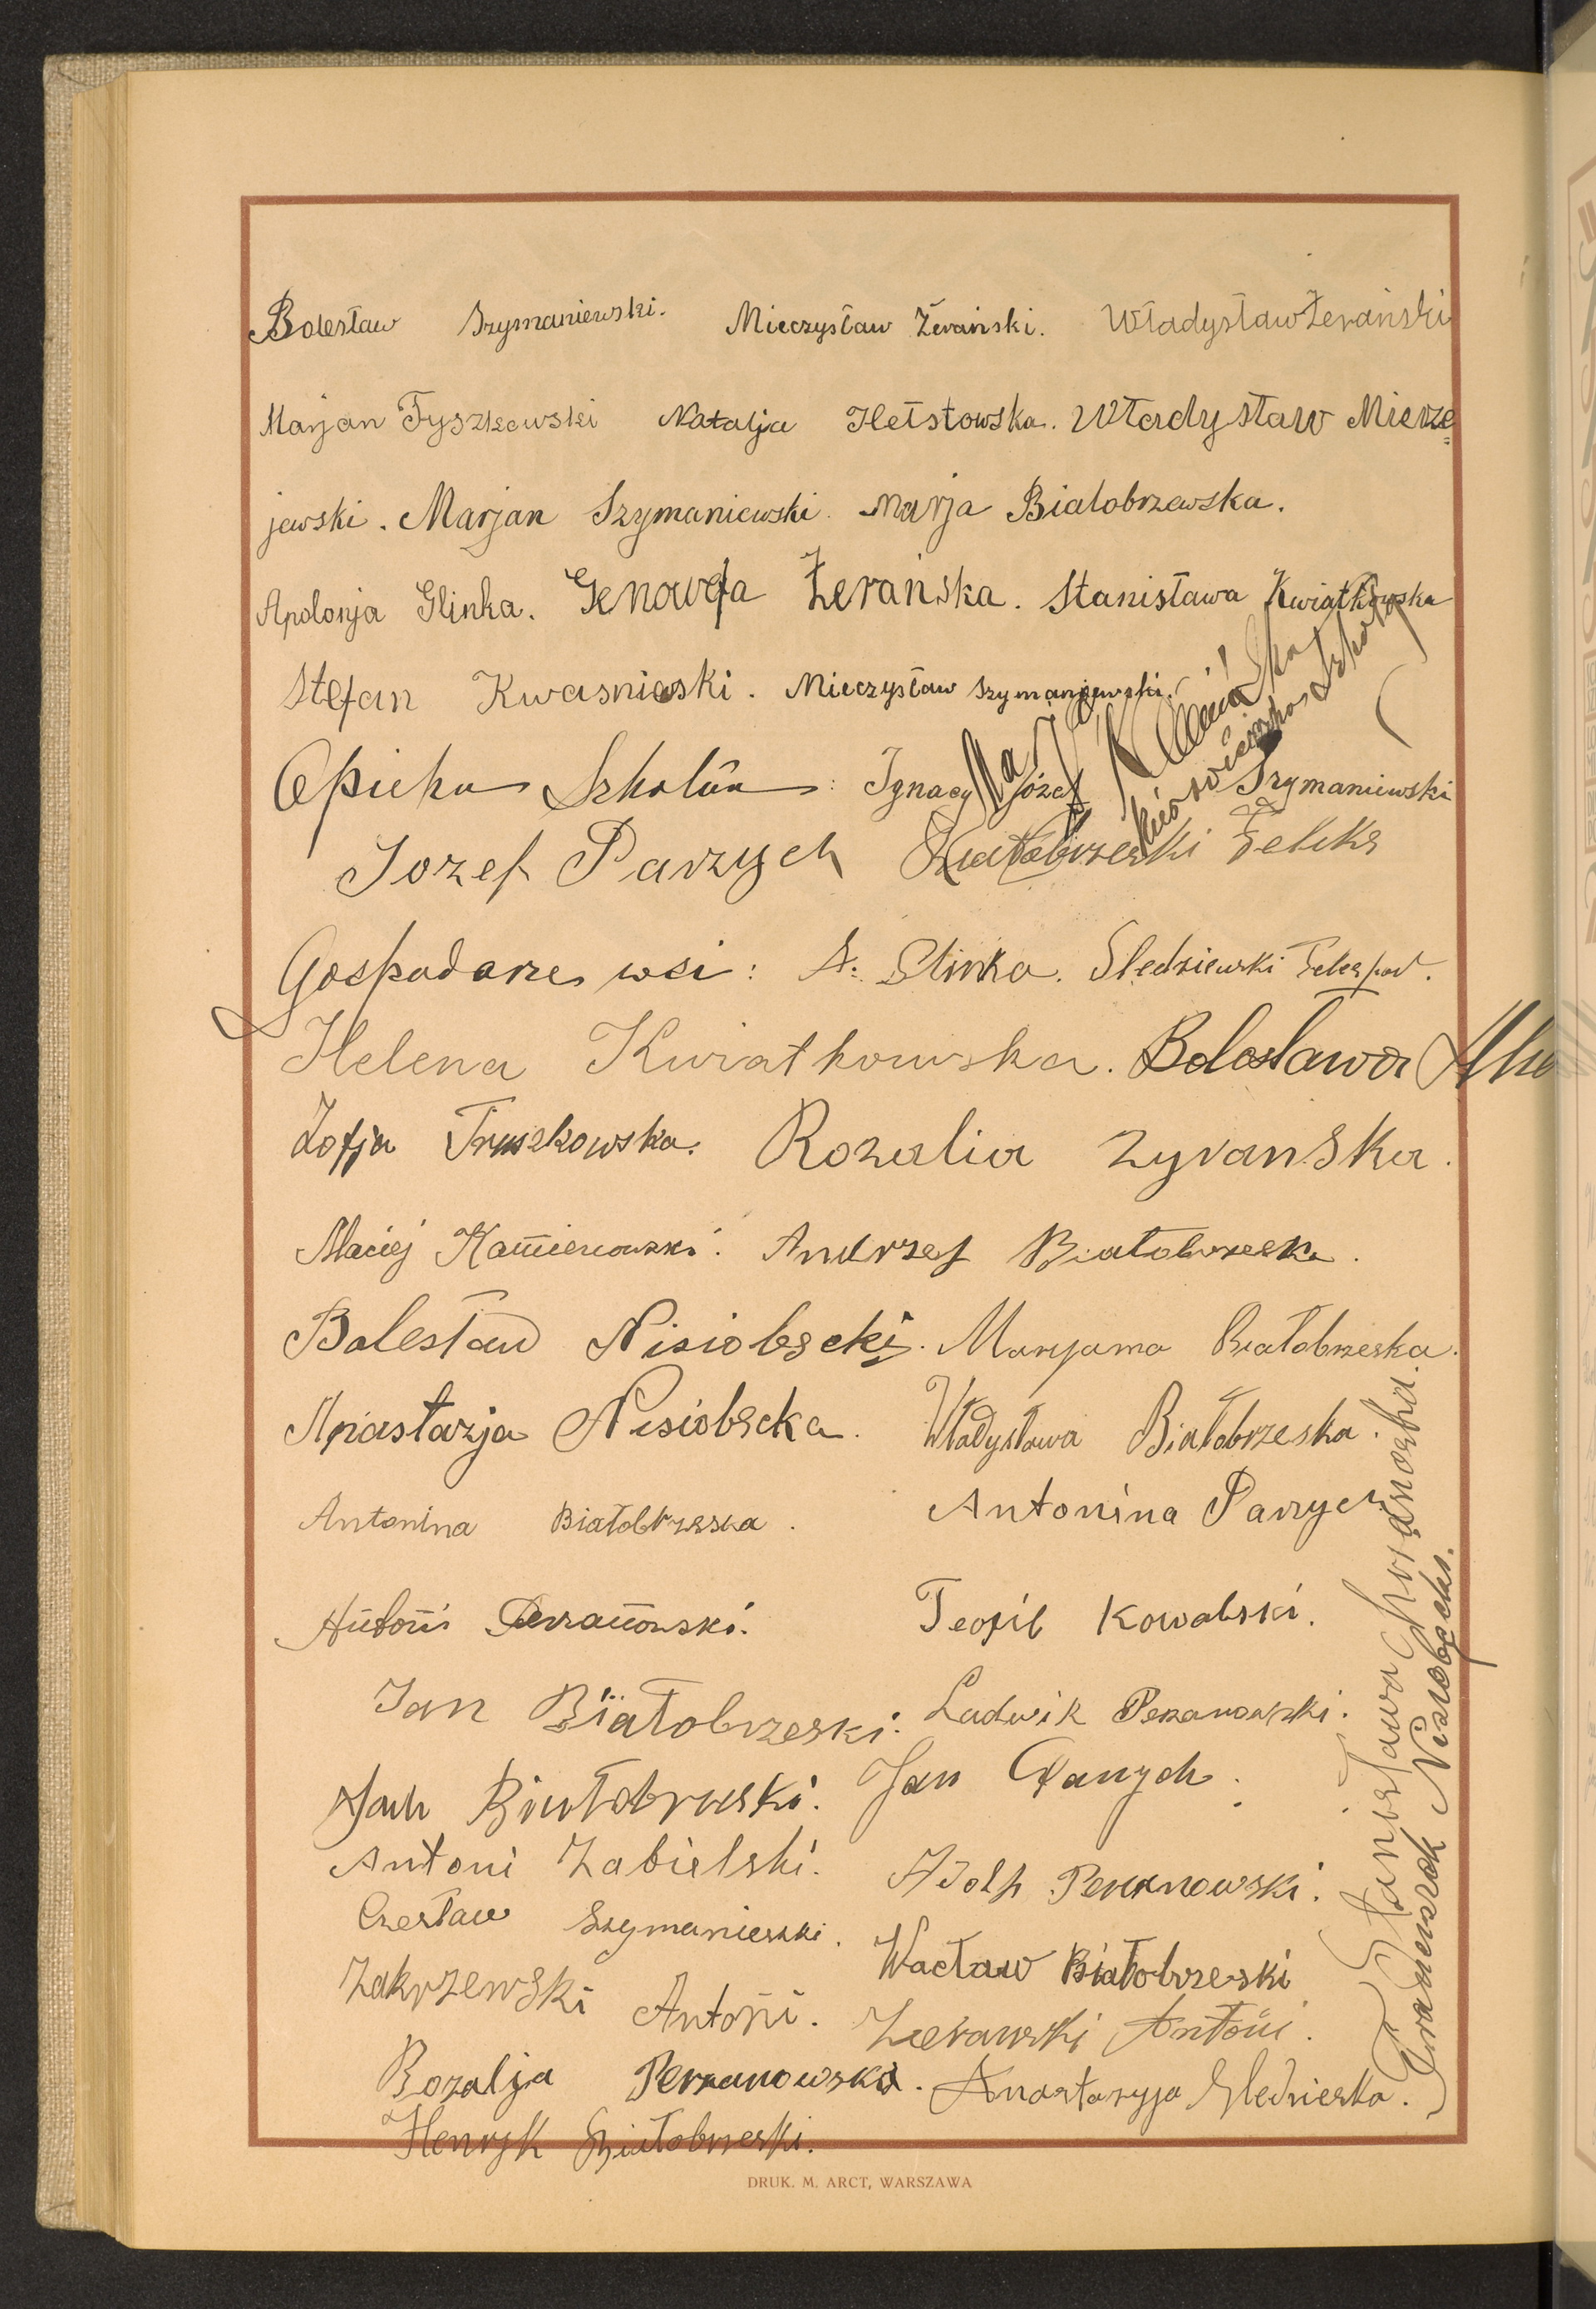 Bolesław Szymaniewski. Mieczysław Żerański. Władysław Żerański
Marjan Tyszkowski Natalja Hełstowska. Władysław Mierze=
jewski. Marjan Szymaniewski. Marja Białobrzewska.
Apolonja Glinka. Genowefa Żerańska. Stanisława Kwiatkowska
Stefan Kwasnieski. Mieczysław Szymaniewski.
Opieka Szkolna: Ignacy Józef Szymaniewski
Marja Kamińska
Kierowniczka Szkoły
Jozef Parzych Białobrzeski Feliks
Gospodarze wsi: A. Glinka. Sledziewski
Helena Kwiatkowska. Bolesława
Zofja Truszkowska. Rozalia Zyranska.
Maciej Kamienowski. Andrzej Białobrzeski.
Bolesław Nisiobęcki. Maryanna Białobrzeska.
Anastazja Nisiobęcka. Władysława Białobrzeska.
Antonina Białobrzeska. Antonina Parzych
Antoni Perzanowski. Teofil Kowalski.
Jan Białobrzeski. Ludwik Perzanowski.
Jan Białobrzeski. Jan Parzych.
Antoni Zabielski. Adolf Perzanowski.
Czesław Szymanieski. Wacław Białobrzeski
Zakrzewski Antoni. Zerawski Antoni.
Rozalja Perzanowska. Anastazyja Sledzieska.
Henryk Białobrzeski.
Stanisława Chorąnoska.
Franciszek Nisiobęcki.
DRUK. M. ARCT, WARSZAWA